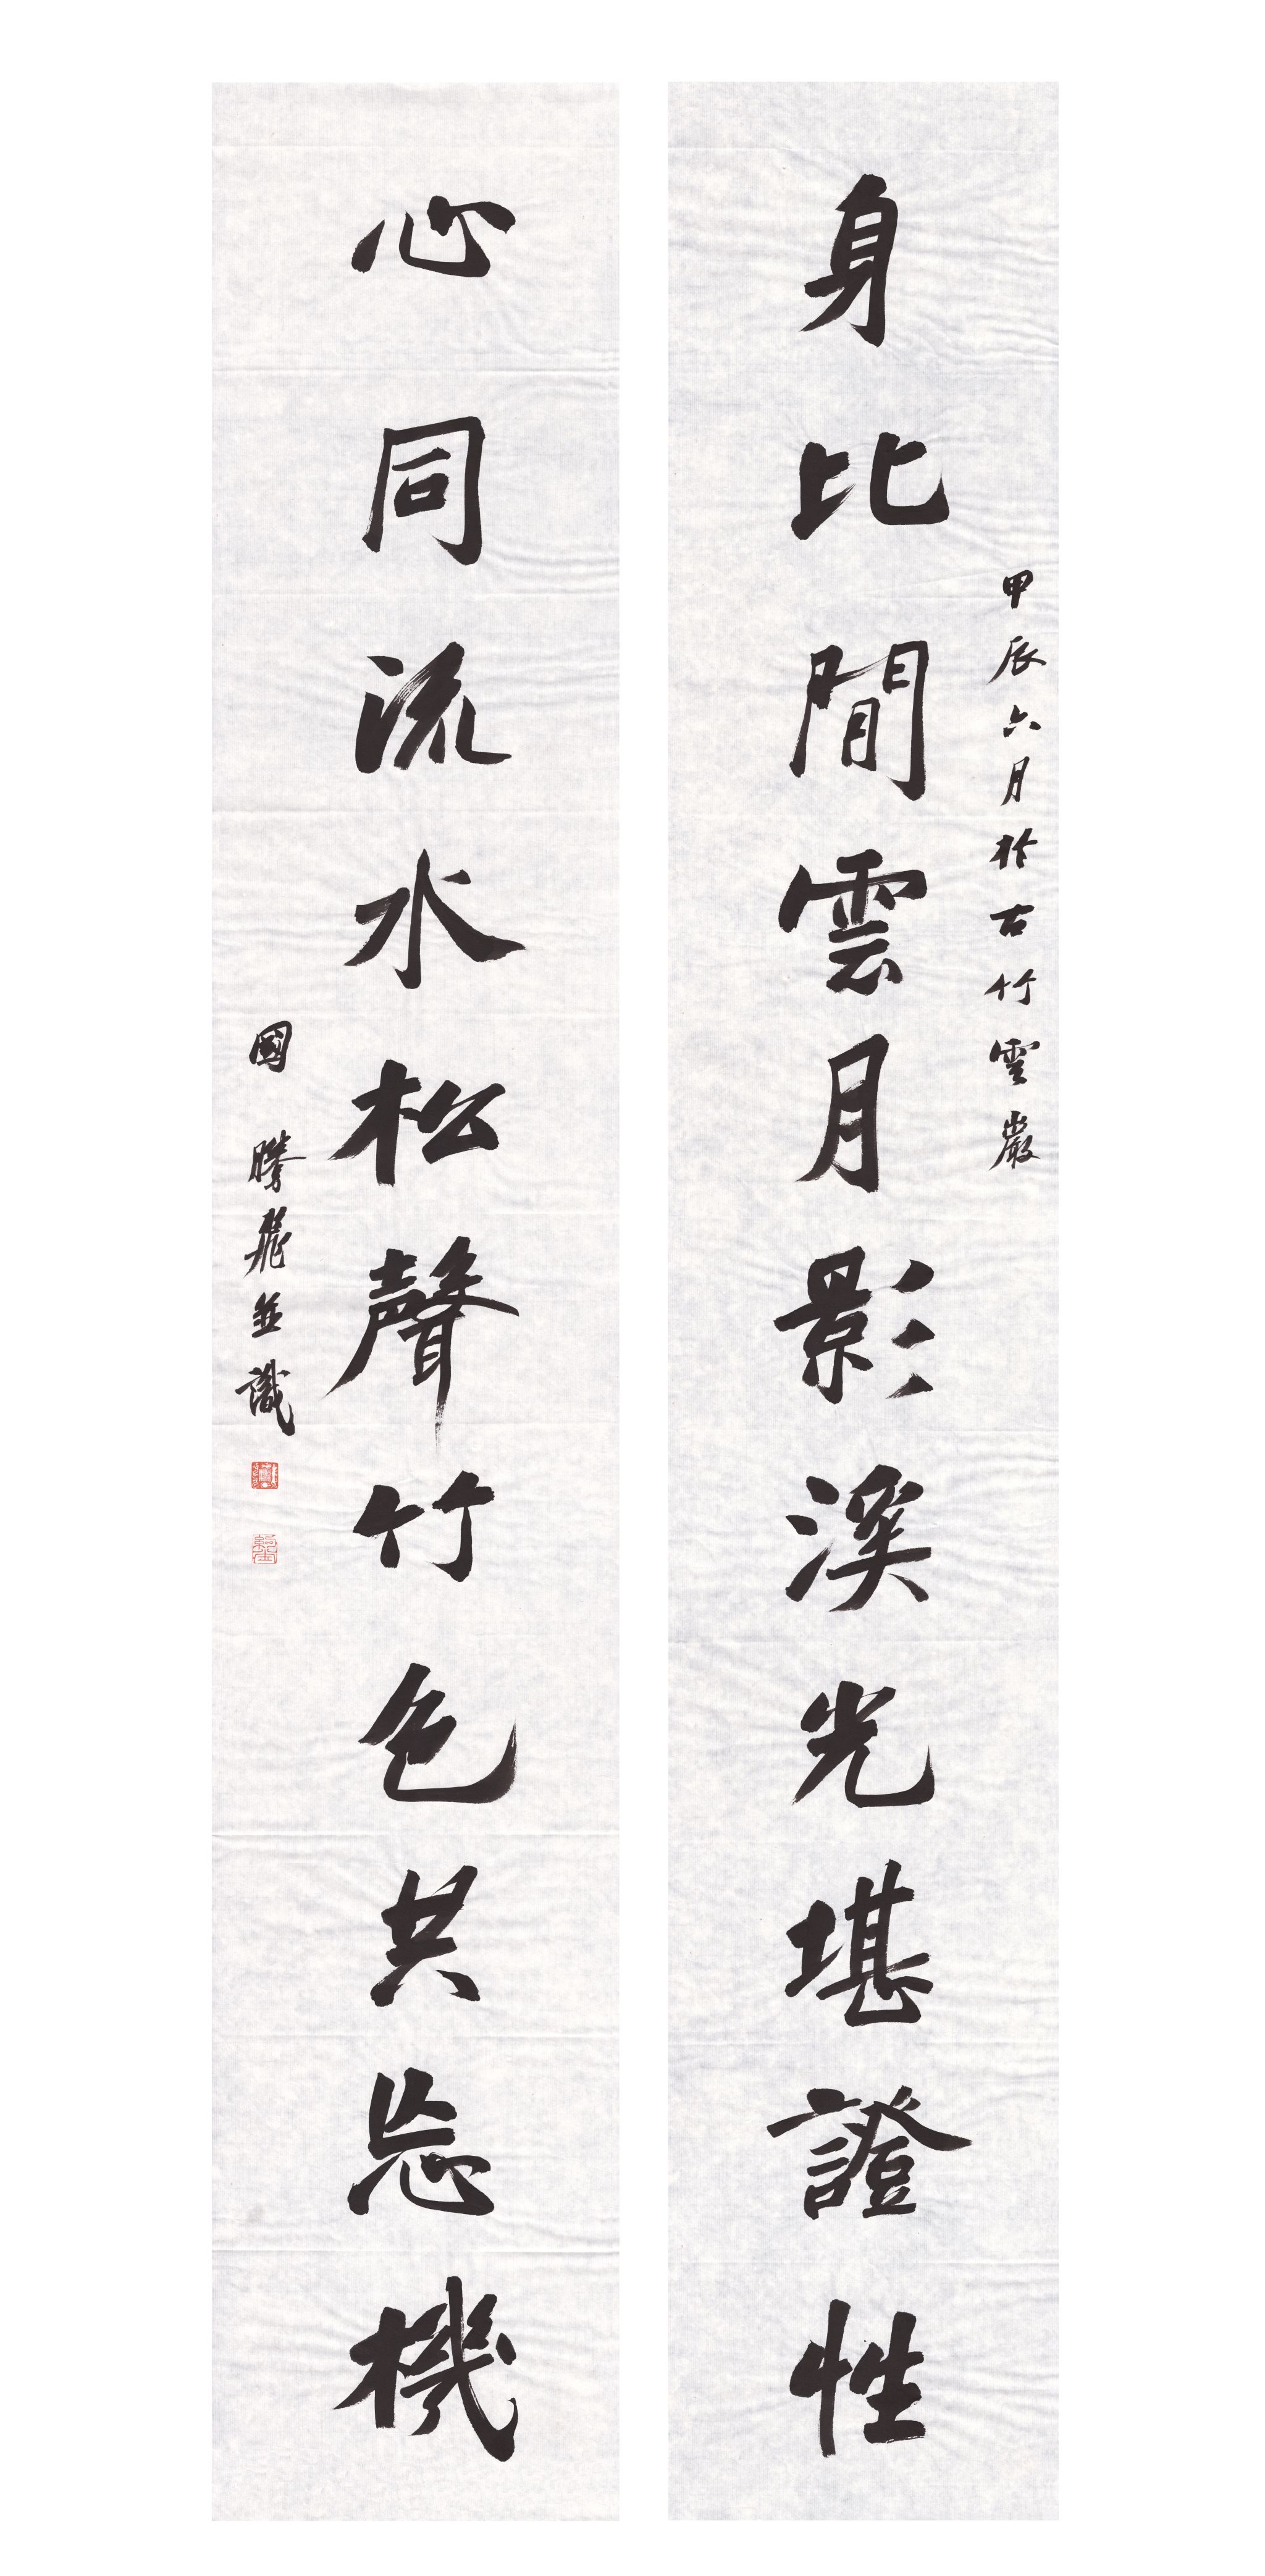 身比閒雲月影溪光堪證性
甲辰六月於古竹雲巖
心同流水松聲竹色共忘機
國 騰飛並識